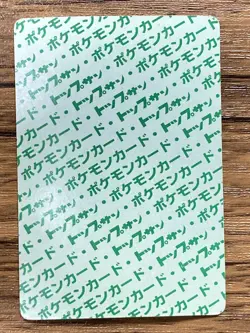 ポケモンカード・
ポケモンカード・トップサン
ポケモンカード・トップサン・
ポケモンカード・トップサン・ポケモン
・トップサン・ポケモンカード
トップサン・ポケモンカード・
ポケモンカード・トップサン
ポケモンカード・トップサン・
ポケモンカード・トップサン・ポケモン
・トップサン・ポケモンカード
トップサン・ポケモンカード・
ポケモンカード・トップサン
ポケモンカード・